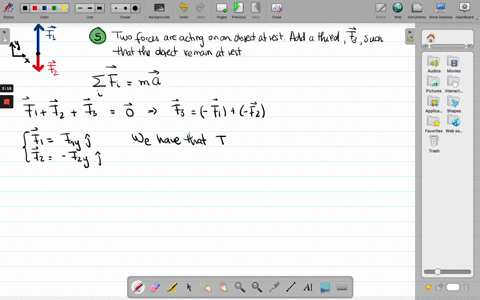 Board Backgrounds Undo Redo Previous Next Erase Board Web Documents Show Desktop OpenBoard
F⃗₁
F⃗₂
y
x
5 Two forces are acting on an object at rest. Add a third, F⃗₃, such
that the object remain at rest
∑ᵢ F⃗ᵢ = ma⃗
F⃗₁ + F⃗₂ + F⃗₃ = 0⃗ ⇒ F⃗₃ = (-F⃗₁) + (-F⃗₂)
{ F⃗₁ = F₁y ĵ We have that F
F⃗₂ = -F₂y ĵ
Audios Movies
Pictures Interact...
Applicat... Shapes
Favorites Web se...
Trash